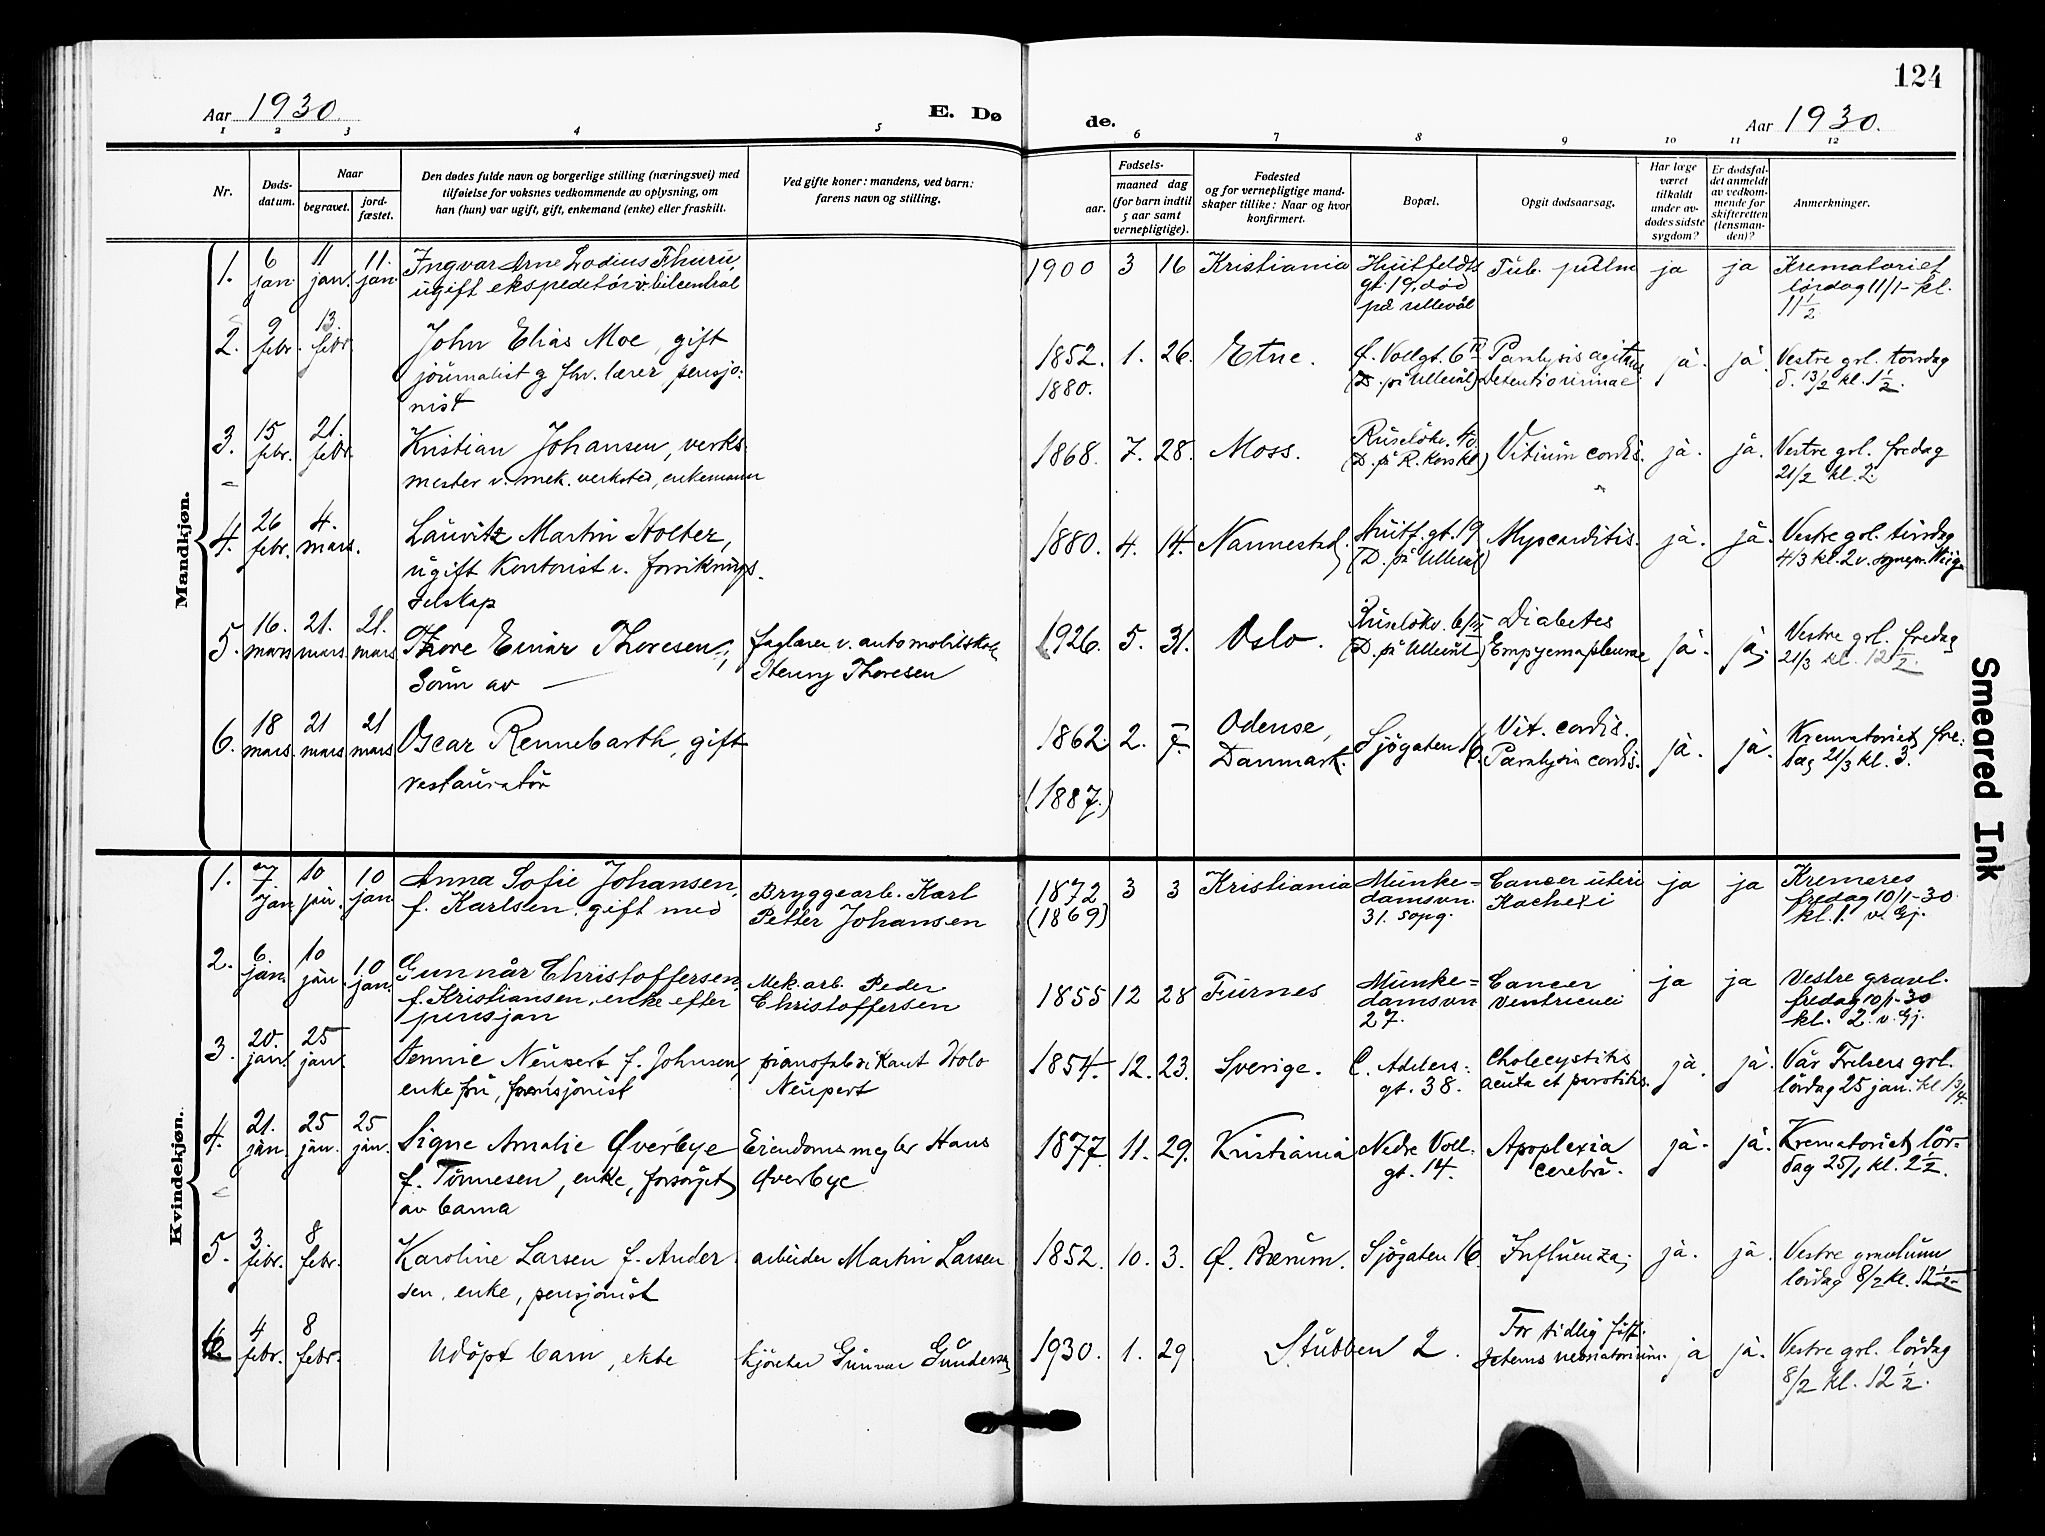 124
Aar 1930.
E. Dø
de.
Aar 1930.
1 2 3 4 5 6 7 8 9 10 11 12
Nr.
Døds-
datum.
Naar
begravet.
jord-
fæstet.
Den dødes fulde navn og borgerlige stilling (næringsvei) med
tilføielse for voksnes vedkommende av oplysning, om
han (hun) var ugift, gift, enkemand (enke) eller fraskilt.
Ved gifte koner: mandens, ved barn:
farens navn og stilling.
Fødsels-
aar.
maaned dag
(for barn indtil
5 aar samt
vernepligtige).
Fødested
og for vernepligtige mand-
skaper tillike: Naar og hvor
konfirmert.
Bopæl.
Opgit dødsaarsag.
Har læge
været
tilkaldt
under av-
dødes sidste
sygdom?
Er dødsfal-
det anmeldt
av vedkom-
mende for
skifteretten
(lensman-
den)?
Anmerkninger.
Mandkjøn.
1. 6 jan. 11 jan. 11. jan. Ingvar Arne Lodius Thuru,
ugift ekspeditör v. bilcentral
1900 3 16 Kristiania Huitfeldts
gt. 19, död
på Ullevål
Tub. pulm ja ja Krematoriet
lördag 11/1- kl.
11 1/2
2. 9 febr. 13. febr. John Elias Moe, gift
journalist og fhv. lærer pensjo-
nist
1852. 1. 26. Etne. Ø. Vollgt. 6 IV
(D. på Ullevål)
1880.
Paralysis agitans
Detentio urinae. ja. ja. Vestre grl. torsdag
d. 13/2 kl. 1 1/2.
3. 15 febr. 21. febr. Kristian Johansen, verks-
mester v. mek. verksted, enkemann
1868. 7. 28. Moss. Ruselökv. 40
(D. på R. Kors kl.)
Vitium cordis. ja. ja. Vestre grl. fredag
21/2 kl. 2.
4. 26 febr. 4. mars. Lauritz Martin Holter,
ugift Kontorist v. forsikrings-
selskap
1880. 4. 14. Nannestad. Huitf. gt. 19
(D. på Ullevål)
Myocarditis. ja. ja. Vestre grl. tirsdag
4/3 kl. 2 v. sognepr.
5. 16. mars 21. mars 21. mars Thore Einar Thoresen,
Sönn av —
faglærer v. automobilskole
Henry Thoresen
1926. 5. 31. Oslo. Ruselökv. 6/III
(D. på Ullevål)
Diabetes
Empyema pleurae ja. ja. Vestre grl. fredag
21/3 kl. 12 1/2.
6. 18 mars. 21 mars 21 mars Oscar Rennebarth, gift
restauratör
1862. 2. 7. Odense,
Danmark. Sjögaten 16.
(1887.)
Vit. cordis.
Paralysis cordis. ja. ja. Krematoriet, fre-
dag 21/3 kl. 3.
Kvindekjøn.
1. 7 jan 10 jan. 10 jan Anna Sofie Johansen,
f. Karlsen. gift med
Bryggearb. Karl
Petter Johansen
1872 3 3 Kristiania Munke=
damsvn.
31. sopg.
(1869)
Cancer uteri
Kachexi ja ja Kremeres
fredag 10/1-30.
kl. 1. v. Gj.
2. 6. jan. 10 jan. 10 jan. Gunnår Christoffersen,
f. Kristiansen, enke efter
pensjon
Mek. arb. Peder
Christoffersen
1855 12 28 Furnes Munke=
damsvn
27.
Cancer
ventriculi ja ja Vestre gravl.
fredag 10/1-30
kl. 2. v. Gj.
3. 20. jan. 25 jan. Jennie Neupert f. Johnsen,
enkefru, pensjonist
pianofabrikant Holo
Neupert
1854. 12. 23. Sverige. C. Adelers-
gt. 38.
Cholecystitis
acuta et parotitis. ja. ja. Vår Frelsers grl.
lördag 25 jan. kl 1 3/4.
4. 21. jan. 25 jan. 25 jan. Signe Amalie Øverbye
f. Tönnesen, enke, forsörget
av barna
Eiendomsmegler Hans
Øverbye
1877. 11. 29. Kristiania Nedre Voll-
gt. 14.
Apoplexia
cerebri. ja. ja. Krematoriet, lör-
dag 25/1 kl. 2 1/2.
5. 3. febr. 8 febr. Karoline Larsen f. Ander-
sen, enke, pensjonist
arbeider Martin Larsen
1852. 10. 3. Ø. Bærum. Sjögaten 16 Influenza; ja. ja. Vestre gravlunn
lördag 8/2 kl. 12 1/2
6. 4 febr. 8 febr. Udöpt barn, ekte kjörer Gunvar Gundersen
1930. 1. 29. Stubben 2. For tidlig föd.
Icterus neonatorium. ja ja. Vestre grl. lördag
8/2 kl. 12 1/2.
Smeared Ink